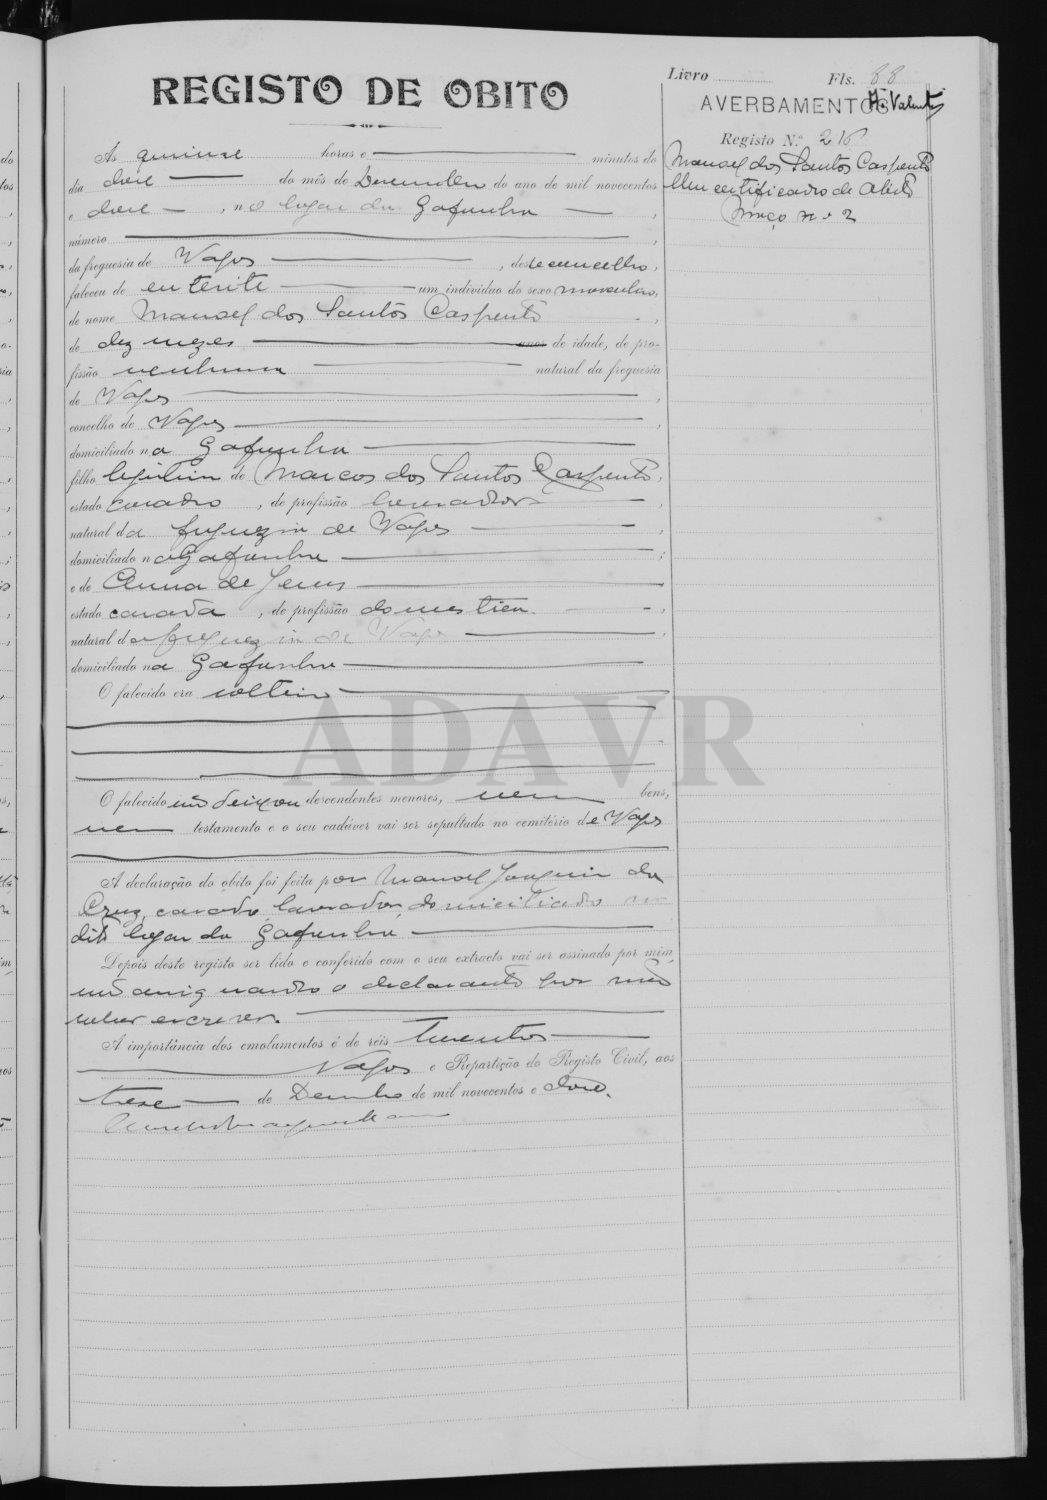 Livro Fls. 88
REGISTO DE OBITO
AVERBAMENTOS
Registo N.º 216
Manoel dos Santos Caspento
Um certificado de obito
Maço nº 2
Ás quinze horas e minutos do
dia doze do mês de Dezembro do ano de mil novecentos
e doze, no lugar da Gafanha,
número,
da freguesia de Vagos, deste concelho,
faleceu de enterite um individuo do sexo masculino,
de nome Manoel dos Santos Caspento,
de dez mezes anos de idade, de pro-
fissão nenhuma natural da freguesia
de Vagos,
concelho de Vagos,
domiciliado na Gafanha
filho legitimo de Marcos dos Santos Caspento,
estado casado, de profissão lavrador,
natural da freguezia de Vagos,
domiciliado na Gafanha;
e de Anna de Jesus,
estado casada, de profissão domestica,
natural da freguezia de Vagos,
domiciliada na Gafanha
O falecido era solteiro
ADAVR
O falecido não deixou descendentes menores, nem bens,
nem testamento e o seu cadáver vai ser sepultado no cemitério de Vagos
A declaração do óbito foi feita por Manoel Joaquim da
Cruz, casado, lavrador, domiciliado no
dito lugar da Gafanha
Depois deste registo ser lido e conferido com o seu extracto vai ser assinado por mim,
não assignando o declarante por não
saber escrever.
A importância dos emolumentos é de réis trezentos
Vagos e Repartição do Registo Civil, aos
treze de Dezembro de mil novecentos e doze.